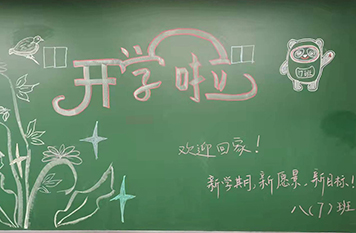 开学啦
7班
欢迎回家!
新学期,新愿景,新目标!
八(7)班